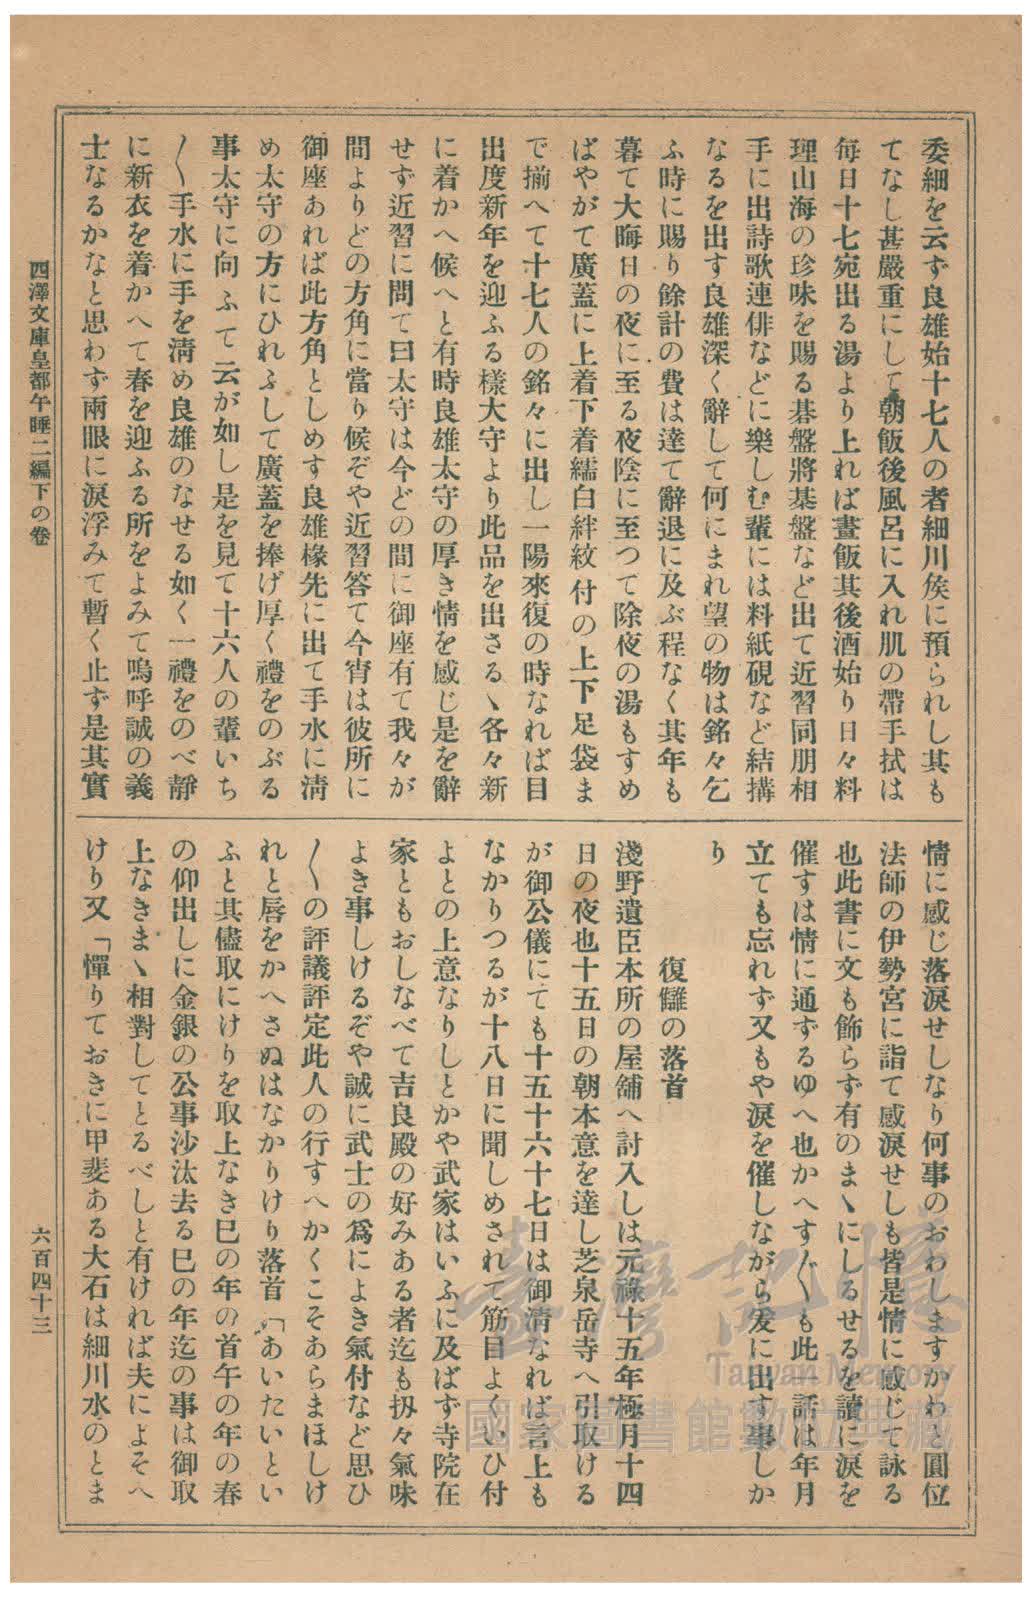 委細を云ず良雄始十七人の者細川矦に預られし其も
てなし甚嚴重にして朝飯後風呂に入れ肌の帶手拭は
每日十七宛出る湯より上れば晝飯其後酒始り日々料
理山海の珍味を賜る碁盤將棊盤など出て近習同朋相
手に出詩歌連俳などに樂しむ輩には料紙硯など結搆
なるを出す良雄深く辭して何にまれ望の物は銘々乞
ふ時に賜り餘計の費は達て辭退に及ぶ程なく其年も
暮て大晦日の夜に至る夜陰に至つて除夜の湯もすめ
ばやがて廣蓋に上着下着繻白絆紋付の上下足袋ま
で揃へて十七人の銘々に出し一陽來復の時なれば目
出度新年を迎ふる樣大守より此品を出さるゝ各々新
に着かへ候へと有時良雄太守の厚き情を感じ是を辭
せず近習に問て曰太守は今どの間に御座有て我々が
間よりどの方角に當り候ぞや近習答て今宵は彼所に
御座あれば此方角としめす良雄椽先に出て手水に淸
め太守の方にひれふして廣蓋を捧げ厚く禮をのぶる
事太守に向ふて云が如し是を見て十六人の輩いち
〱手水に手を淸め良雄のなせる如く一禮をのべ靜
に新衣を着かへて春を迎ふる所をよみて嗚呼誠の義
士なるかなと思わず兩眼に淚浮みて暫く止ず是其實
情に感じ落淚せしなり何事のおわしますかわと圓位
法師の伊勢宮に詣て感淚せしも皆是情に感じて詠る
也此書に文も飾らず有のまゝにしるせるを讀に淚を
催すは情に通ずるゆへ也かへす〲も此一話は年月
立ても忘れず又もや淚を催しながら爰に出す事しか
り
復讎の落首
淺野遺臣本所の屋舖へ討入しは元祿十五年極月十四
日の夜也十五日の朝本意を達し芝泉岳寺へ引取ける
が御公儀にても十五十六十七日は御淸なれば言上も
なかりつるが十八日に聞しめされて筋目よくいひ付
よとの上意なりしとかや武家はいふに及ばず寺院在
家ともおしなべて吉良殿の好みある者迄も扨々氣味
よき事しけるぞや誠に武士の爲によき氣付など思ひ
〱の評議評定此人の行すへかくこそあらまほしけ
れと唇をかへさぬはなかりけり落首「あいたいとい
ふと其儘取にけりを取上なき巳の年の首午の年の春
の仰出しに金銀の公事沙汰去る巳の年迄の事は御取
上なきまゝ相對してとるべしと有ければ夫によそへ
けり又「憚りておきに甲斐ある大石は細川水のとま
四澤文庫皇都午睡二編下の卷
六百四十三
臺灣記憶
Taiwan Memory
國家圖書館數位典藏